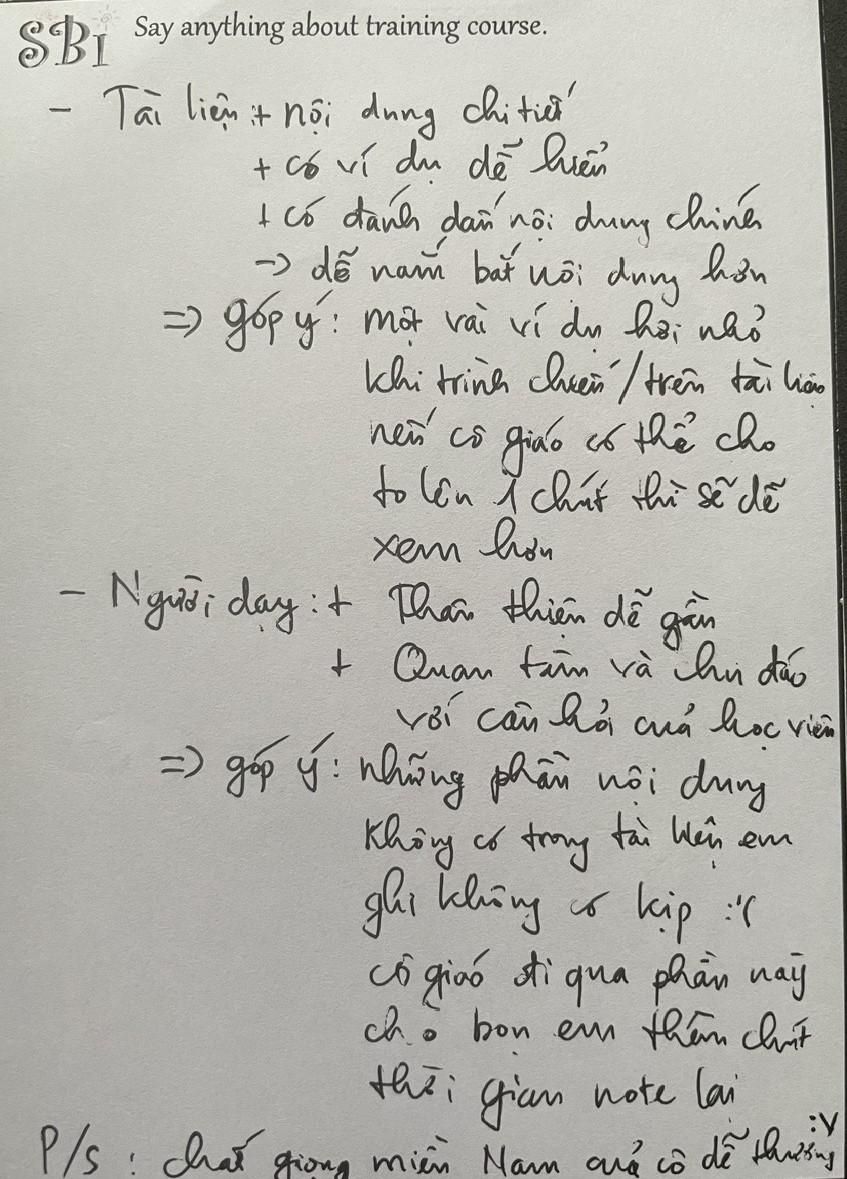 SBI Say anything about training course.
- Tài liệu: + nội dung chi tiết
+ có ví dụ dễ hiểu
+ có đánh dấu nội dung chính
-> dễ nắm bắt nội dung hơn
=> góp ý: một vài ví dụ hơi nhỏ
khi trình chiếu / trên tài liệu
nếu cô giáo có thể cho
to lên 1 chút thì sẽ dễ
xem hơn
- Người dạy: + Thân thiện dễ gần
+ Quan tâm và chu đáo
với câu hỏi của học viên
=> góp ý: những phần nội dung
không có trong tài liệu em
ghi không có kịp :'(
cô giáo đi qua phần này
cho bọn em thêm chút
thời gian note lại
P/s: chất giọng miền Nam của cô dễ thương :v